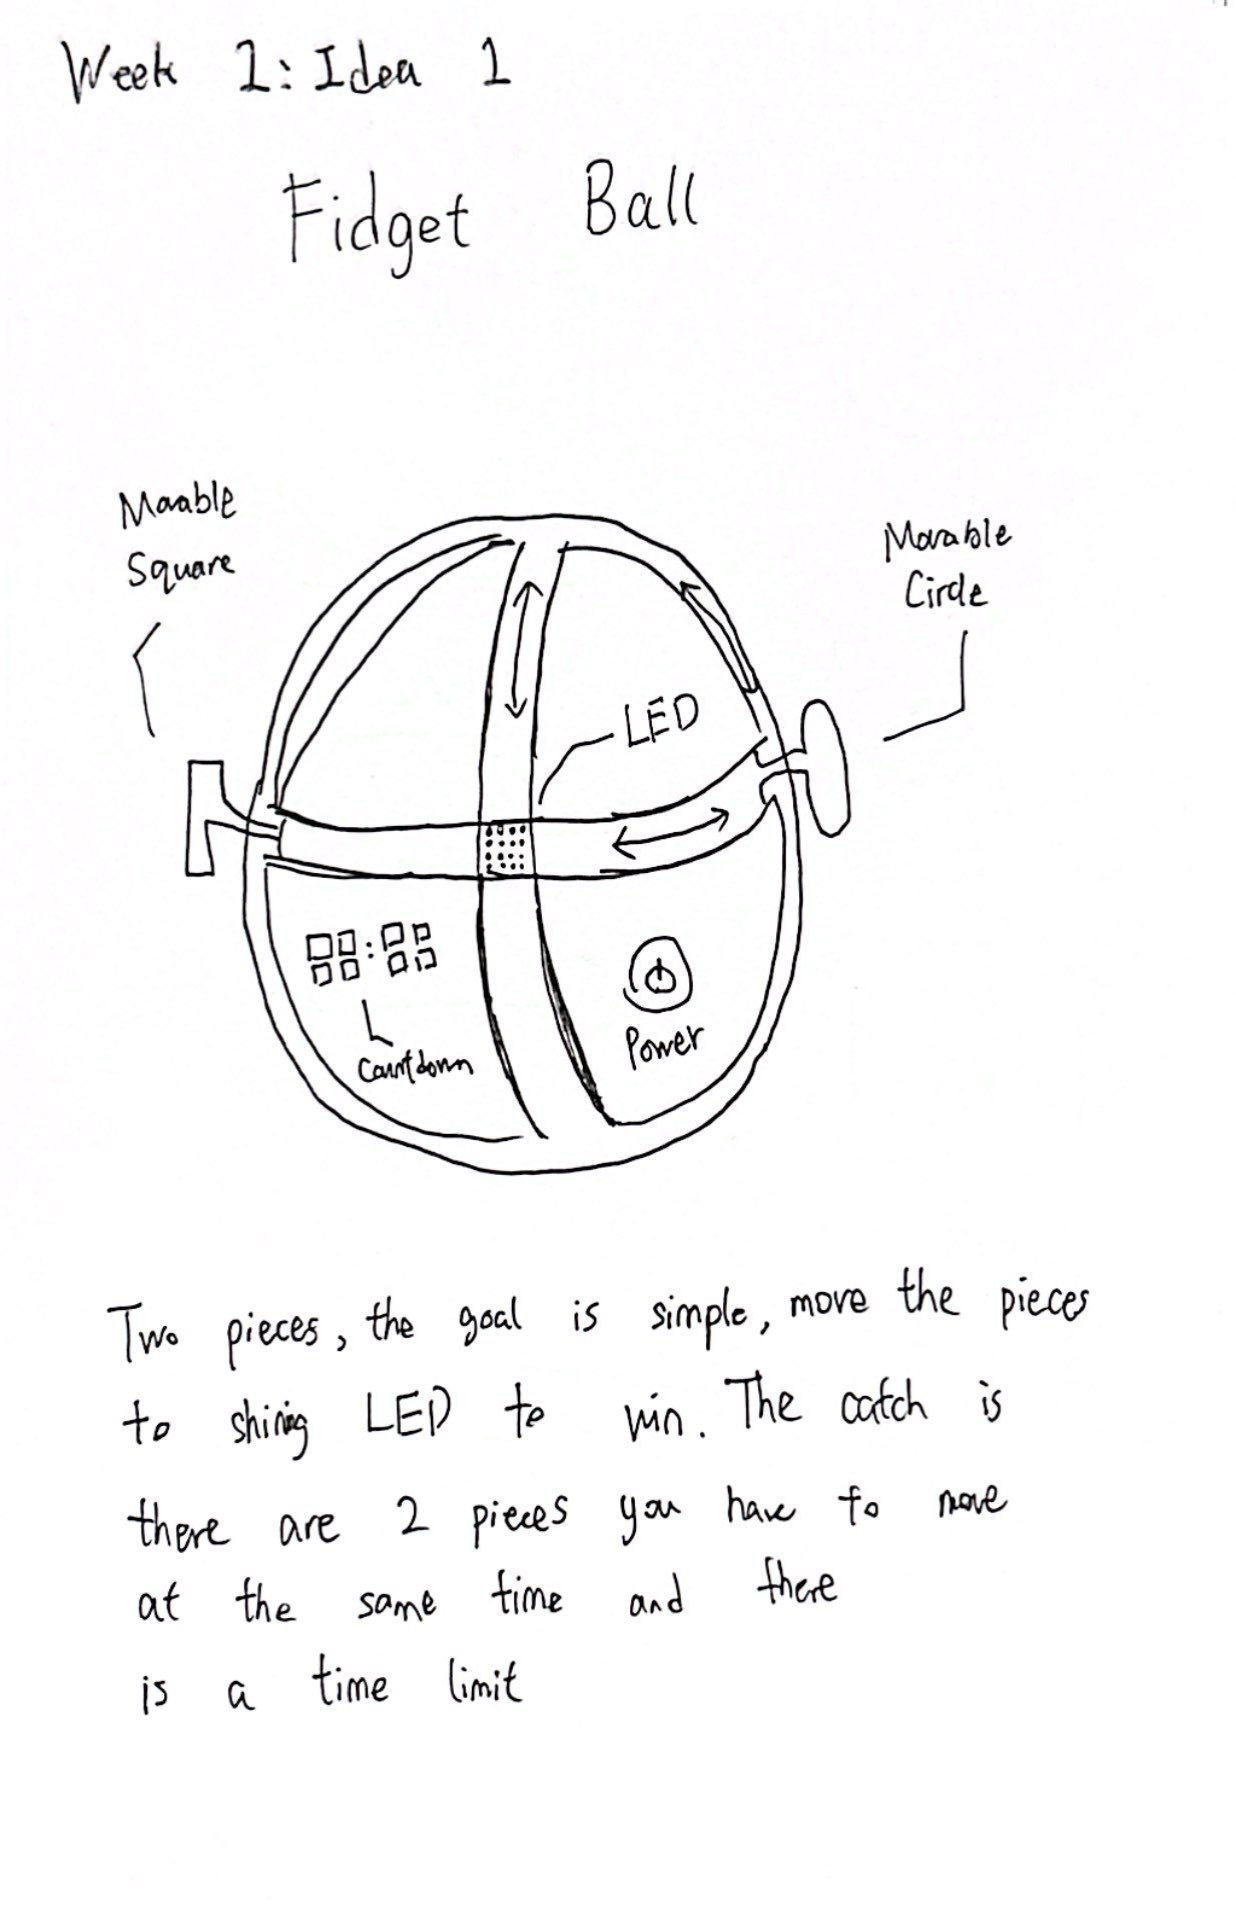 Week 1: Idea 1
Fidget Ball
Movable
Square
Movable
Circle
LED
88:88
Countdown
Power
Two pieces, the goal is simple, move the pieces
to shinig LED to win. The catch is
there are 2 pieces you have to move
at the same time and there
is a time limit